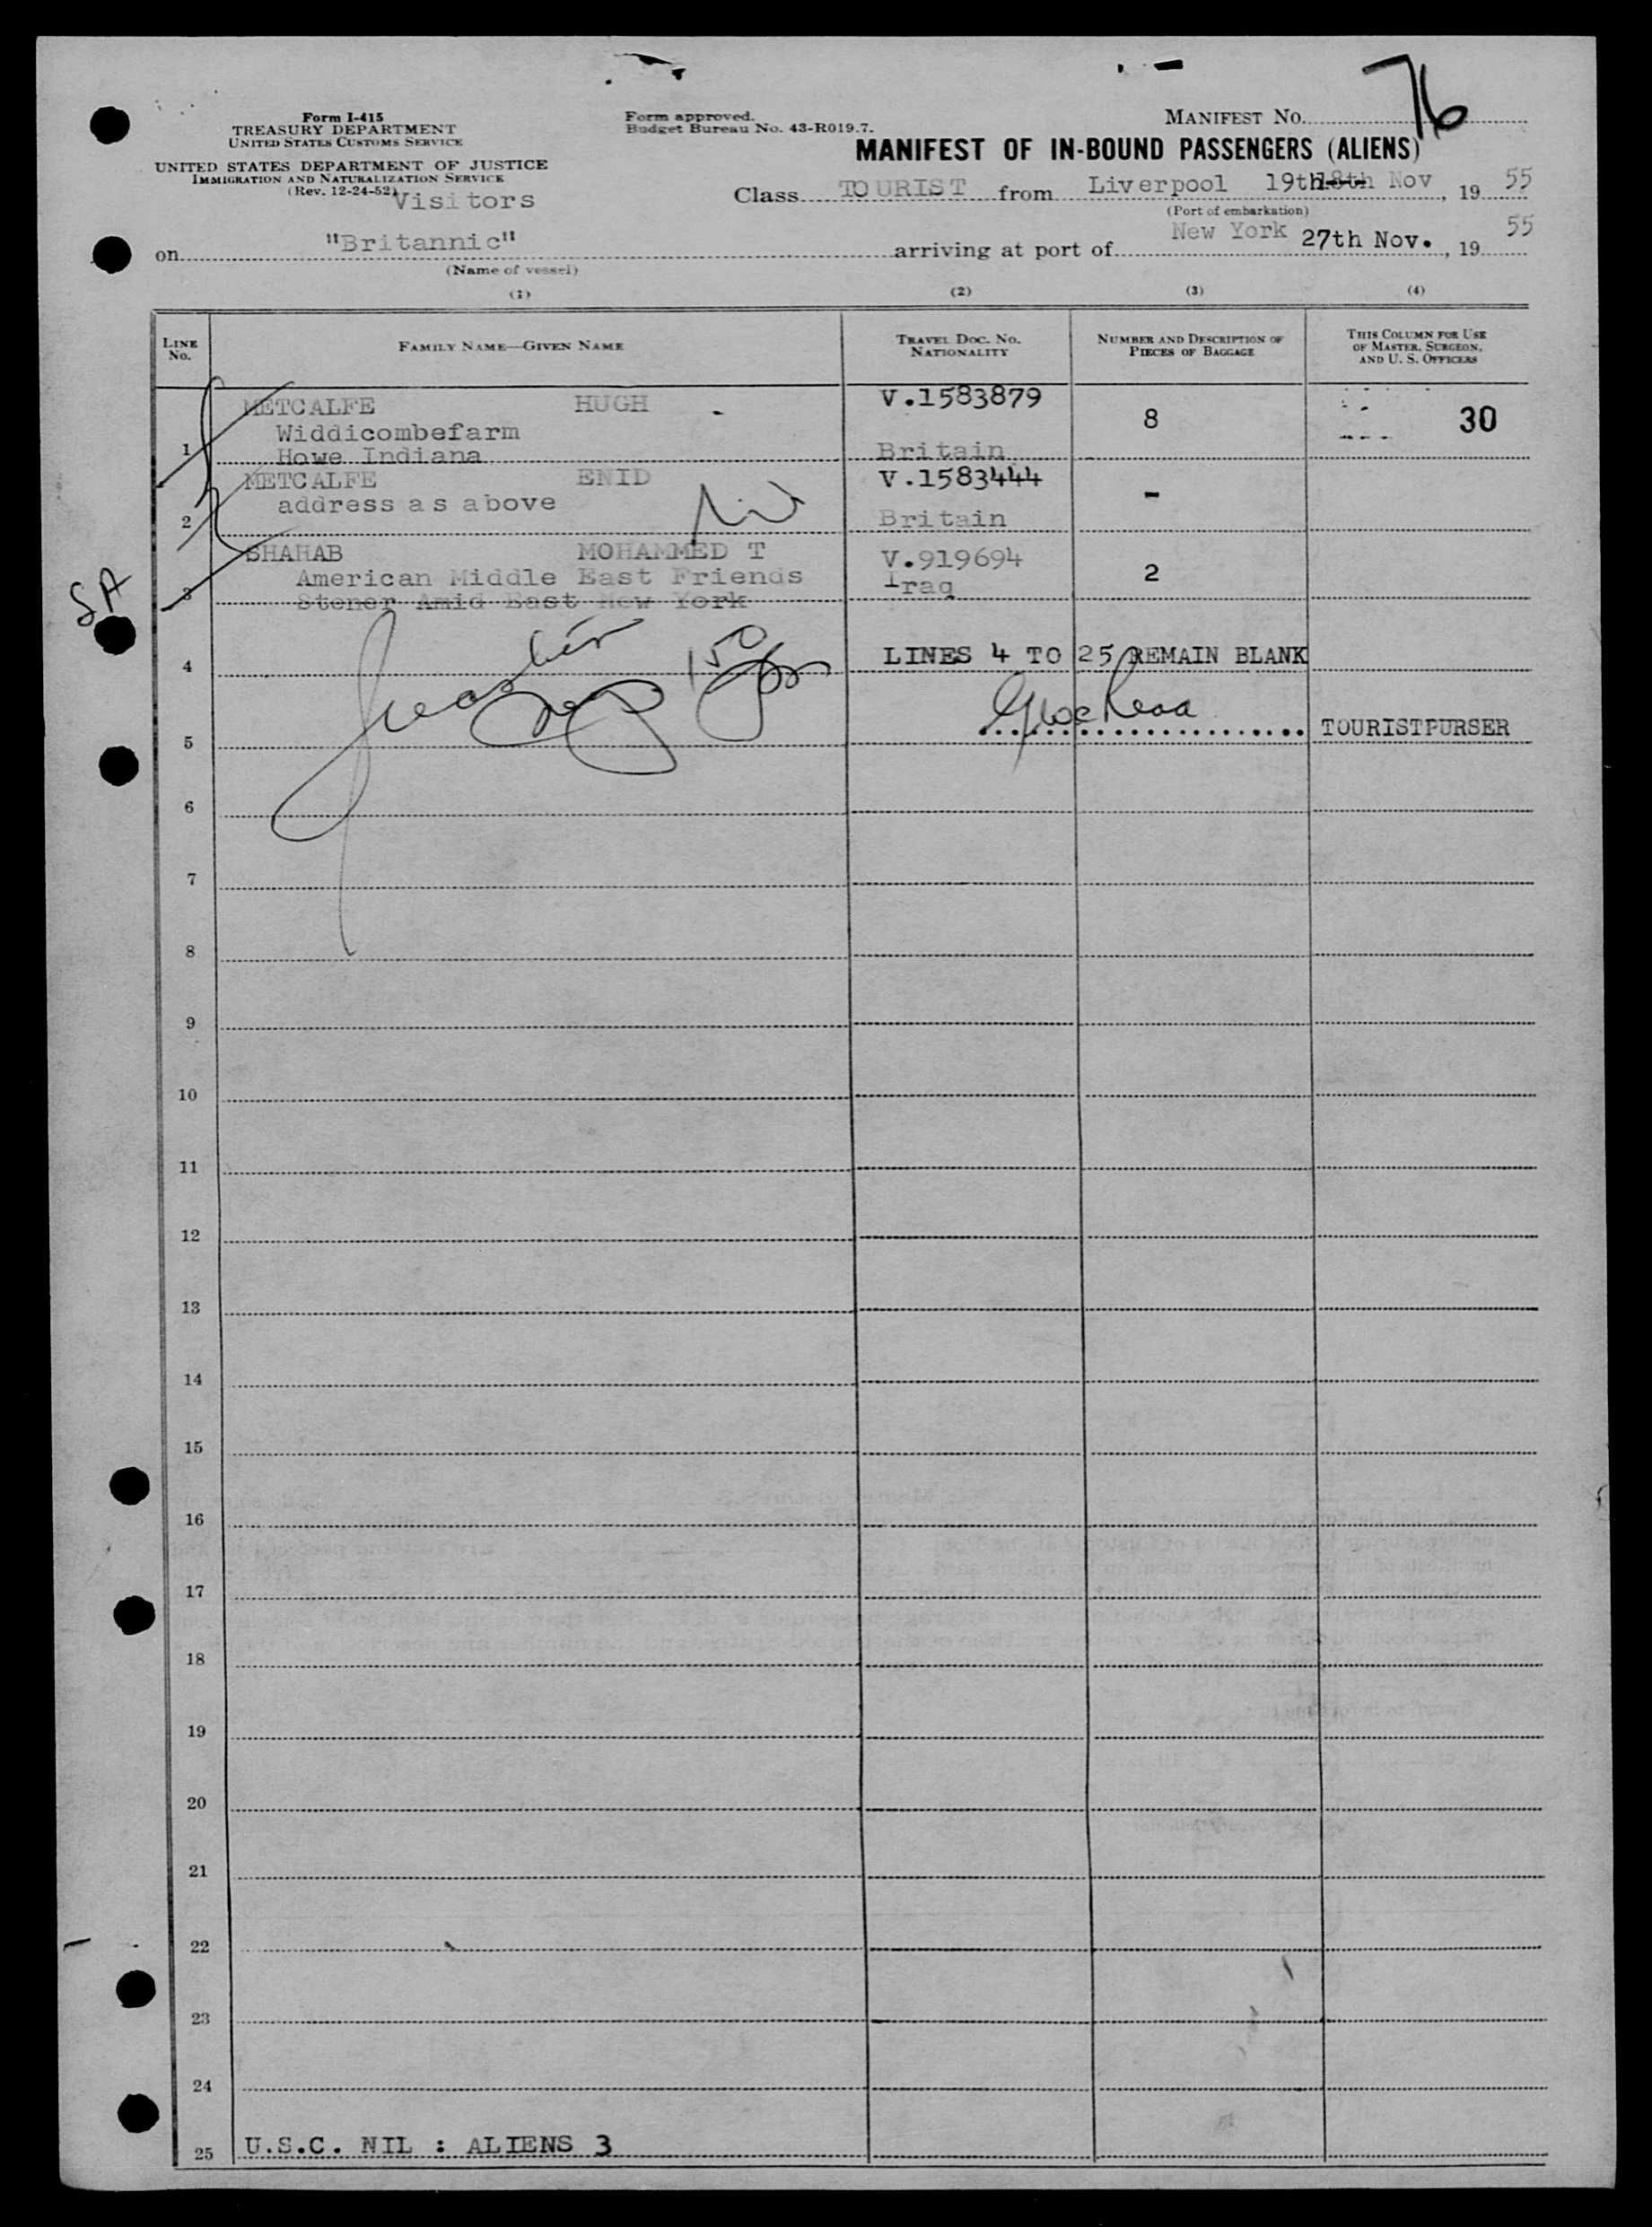 76
Form I-415
TREASURY DEPARTMENT
UNITED STATES CUSTOMS SERVICE
UNITED STATES DEPARTMENT OF JUSTICE
IMMIGRATION AND NATURALIZATION SERVICE
(Rev. 12-24-52)
Visitors
Form approved.
Budget Bureau No. 43-R019.7.
MANIFEST NO.
MANIFEST OF IN-BOUND PASSENGERS (ALIENS)
Class TOURIST from Liverpool 19th 18th Nov, 19 55
(Port of embarkation)
on "Britannic" arriving at port of New York 27th Nov., 19 55
(Name of vessel)
(1) (2) (3) (4)
LINE No. FAMILY NAME—GIVEN NAME TRAVEL DOC. NO. NATIONALITY NUMBER AND DESCRIPTION OF PIECES OF BAGGAGE THIS COLUMN FOR USE OF MASTER, SURGEON, AND U. S. OFFICERS
METCALFE HUGH V.1583879 8 30
Widdicombefarm
1 Howe Indiana Britain
METCALFE ENID V.1583444 -
address as above
2 Britain
SHAHAB MOHAMMED T V.919694 2
American Middle East Friends Iraq
3 Stener Amid East New York
SA
4 LINES 4 TO 25 REMAIN BLANK
150
5 TOURISTPURSER
6
7
8
9
10
11
12
13
14
15
16
17
18
19
20
21
22
23
24
25 U.S.C. NIL : ALIENS 3